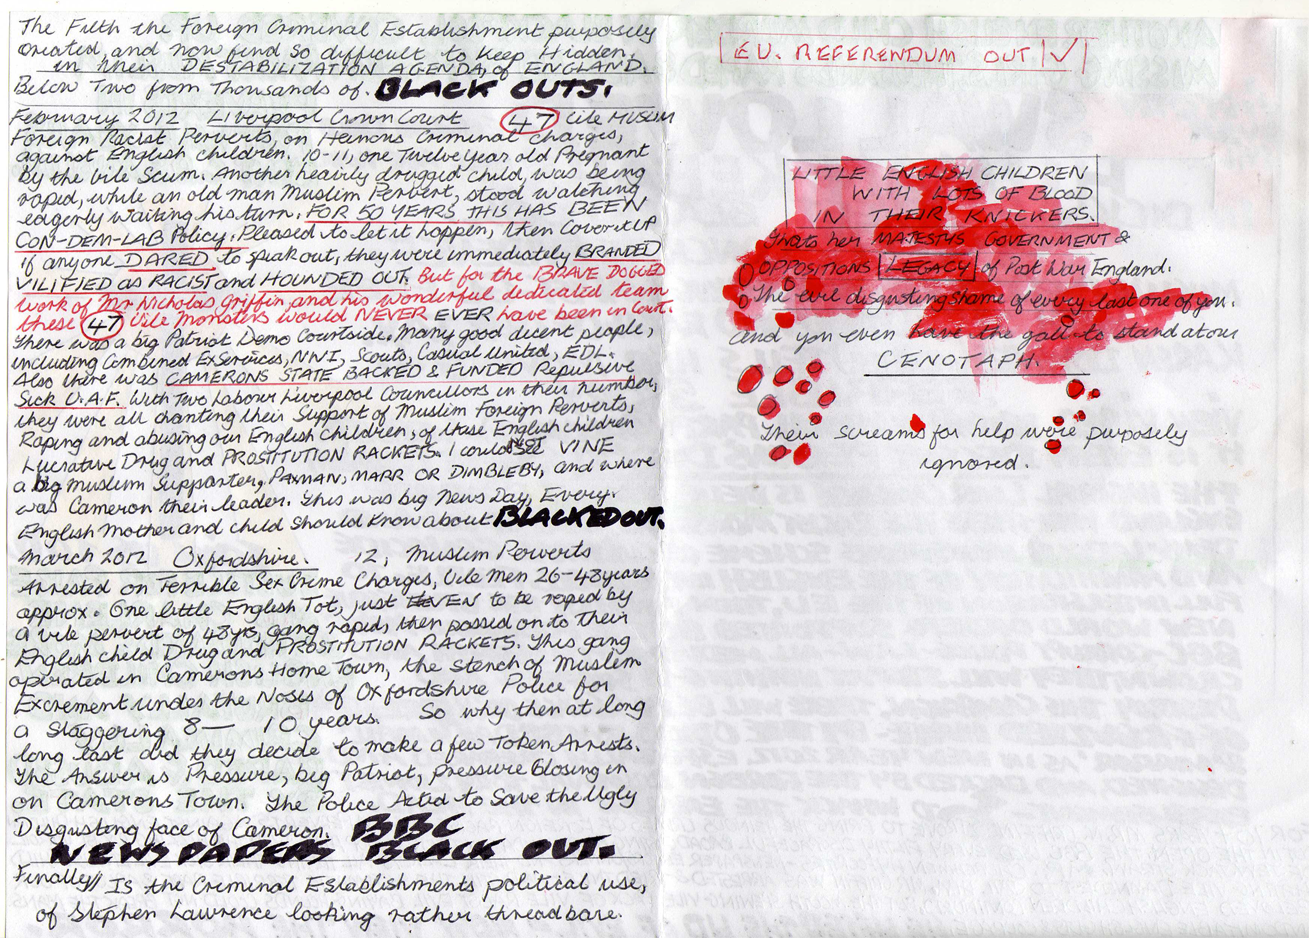 The Filth the Foreign Criminal Establishment purposely
created, and now find so difficult to keep Hidden,
in their DESTABILIZATION AGENDA, of ENGLAND.
Below Two from Thousands of. BLACK OUTS.
February 2012 Liverpool Crown Court 47 Vile MUSLIM
Foreign Racist Perverts, on Heinous Criminal charges,
against English children. 10-11, one Twelve Year old Pregnant
by the Vile Scum. Another heavily drugged child, was being
raped, while an old man Muslim Pervert, stood watching
eagerly waiting his turn. FOR 50 YEARS THIS HAS BEEN
CON-DEM-LAB Policy. Pleased to let it happen, then Cover it UP
if anyone DARED to speak out, they were immediately BRANDED
VILIFIED as RACIST and HOUNDED OUT. But for the BRAVE DOGGED
work of Mr Nicholas Griffin and his wonderful dedicated team
these 47 Vile Monsters would NEVER EVER have been in Court.
There was a big Patriot Demo Courtside. Many good decent people,
including Combined ExServices, NWI, Scouts, Casual United, EDL.
Also there was CAMERONS STATE BACKED & FUNDED Repulsive
Sick U.A.F. With Two Labour Liverpool Councillors in their number,
they were all chanting their Support of Muslim Foreign Perverts,
Raping and abusing our English Children, of these English children
Lucrative Drug and PROSTITUTION RACKETS. I could NOT see VINE
a big Muslim Supporter, PAXMAN, MARR OR DIMBLEBY, and where
was Cameron their leader. This was big News Day, Every
English Mother and child should know about BLACKED OUT.
March 2012 Oxfordshire. 12, Muslim Perverts
Arrested on Terrible Sex Crime Charges, Vile Men 26-48 years
approx. One little English Tot, just ELEVEN to be raped by
a vile pervert of 48 yrs, gang raped, then passed on to their
English child Drug and PROSTITUTION RACKETS. This gang
operated in Camerons Home Town, the stench of Muslim
Excrement under the Noses of Oxfordshire Police for
a staggering 8— 10 years. So why then at long
long last did they decide to make a few Token Arrests.
The Answer is Pressure, big Patriot, pressure Closing in
on Camerons Town. The Police Acted to Save the Ugly
Disgusting face of Cameron. BBC
NEWSPAPERS BLACK OUT.
Finally// Is the Criminal Establishments political use,
of Stephen Lawrence looking rather threadbare.
EU. REFERENDUM OUT ✓
LITTLE ENGLISH CHILDREN
WITH LOTS OF BLOOD
IN THEIR KNICKERS.
Thats her MAJESTYS GOVERNMENT &
OPPOSITIONS LEGACY of Post War England.
The evil disgusting shame of every last one of you.
and you even have the gall to stand at our
CENOTAPH.
Their screams for help were purposely
ignored.